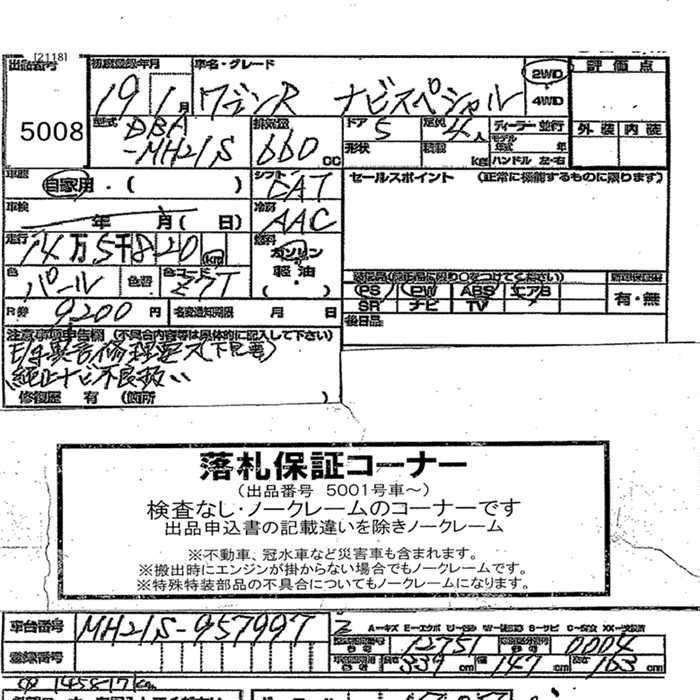 [2118]
出品番号 5008
初度登録年月 19 1月
車名・グレード ワゴンR ナビスペシャル
2WD
4WD
評価点
外装 内装
型式 DBA
-MH21S
排気量 660 CC
ドア 5
形状
定員 4人
積載 kg
ディーラー 並行
モデル年式 年
ハンドル 左・右
車歴 自家用・( )
シフト FAT
セールスポイント (正常に機能するものに限ります)
車検 年 月( 日)
冷房 AAC
走行 14万5千820 km
燃料 ガソリン
軽油
( ・ )
色 パール 色替
色コード Z7T
PS PW ABS エアB
SR ナビ TV
有・無
R券 9200円
名変通知期限 月 日
後日品
注意事項申告欄 (不具合内容等は具体的に記入して下さい)
純正ナビ不良扱い
修復歴 有 (箇所 )
落札保証コーナー
(出品番号 5001号車~)
検査なし・ノークレームのコーナーです
出品申込書の記載違いを除きノークレーム
※不動車、冠水車など災害車も含まれます。
※搬出時にエンジンが掛からない場合でもノークレームです。
※特殊特装部品の不具合についてもノークレームになります。
車台番号 MH21S-957997
A-キズ E-エクボ
登録番号
12751 0004
長さ 339 cm 幅 147 cm 高さ 163 cm
145817km